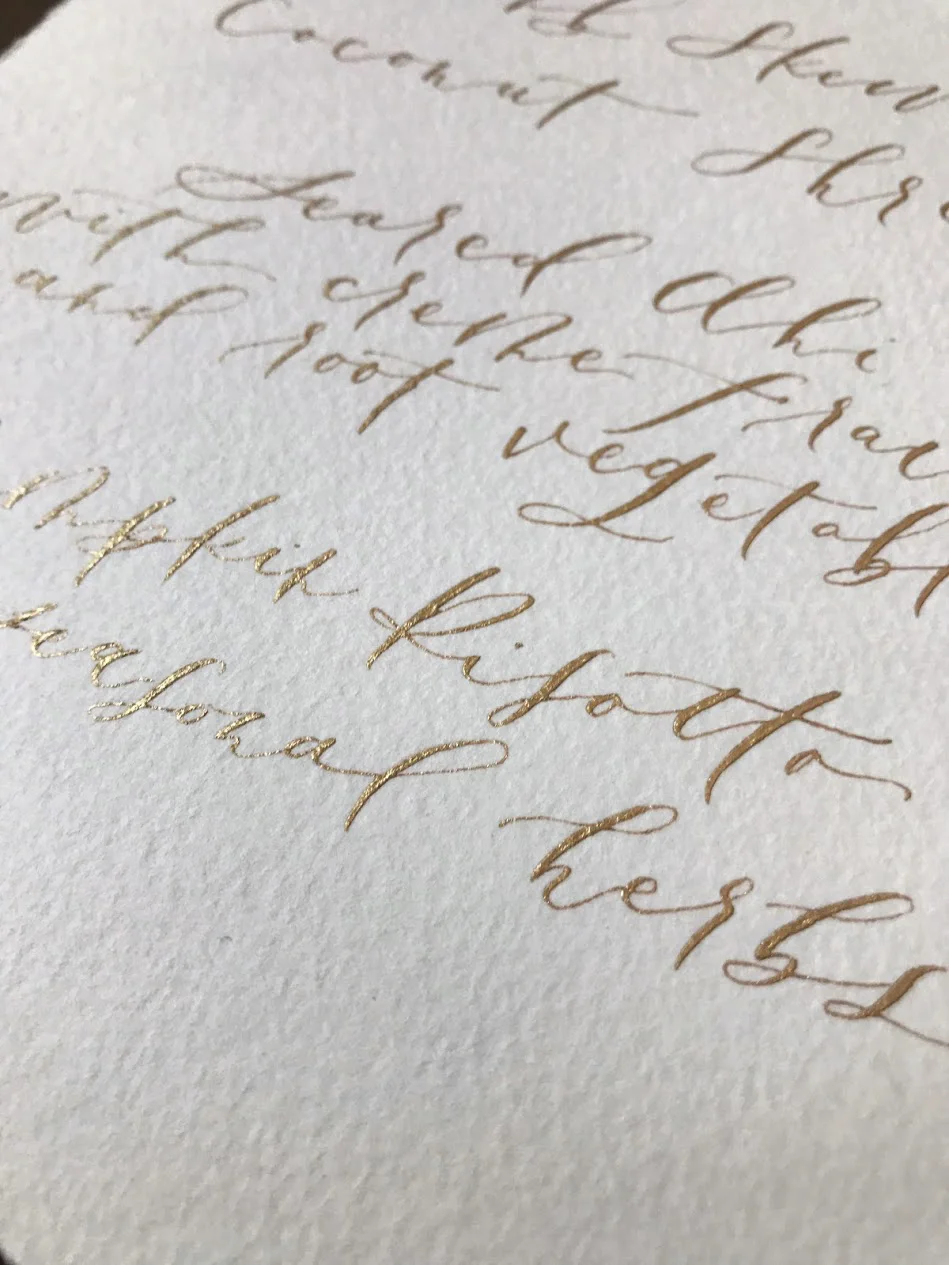 b Skew
Coconut Shr
Seared Ahi
with creme frai
and root vegetabl
mpkin Risotto
seasonal herbs